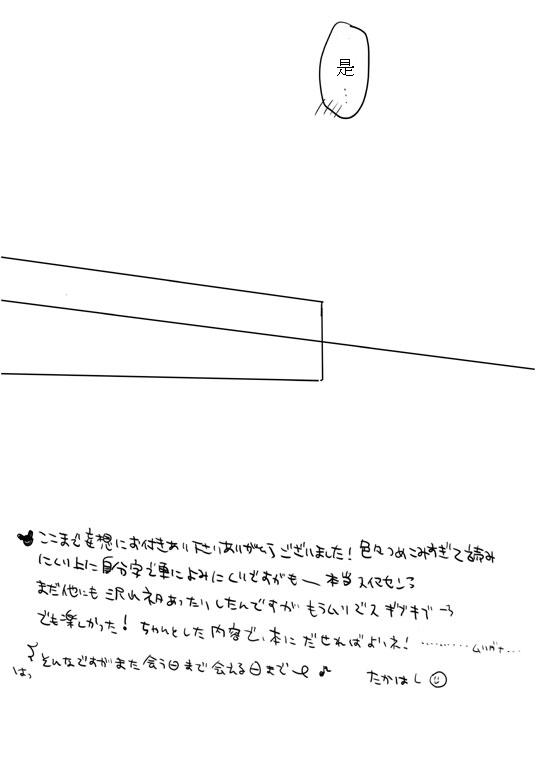 是…
ここまで妄想にお付きあい下さいありがとうございました！色々つめこみすぎて読み
にくい上に自分字で更によみにくいですがもー本当スイマセンっ
まだ他にも沢山ネタあったりしたんですが もうムリでス ギブギブーっ
でも楽しかった！ ちゃんとした内容で、本にだせればよいネ！………ムリがナ…
はっ
そんなですがまた会う日まで会える日まで〜♪ たかはし